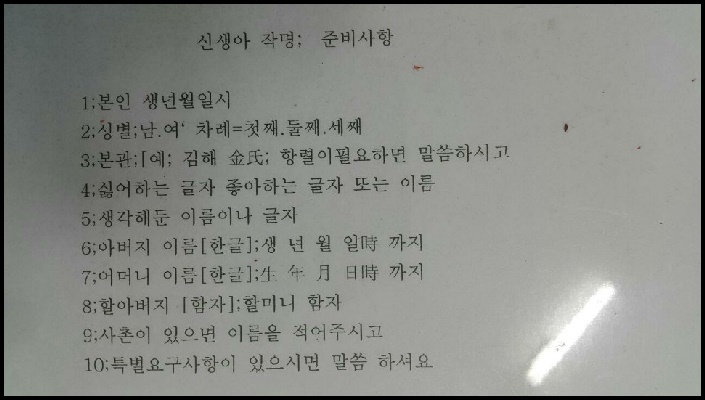 신생아 작명; 준비사항
1;본인 생년월일시
2;성별;남.여' 차례=첫째.둘째.세째
3;본관;[예; 김해 金氏; 항렬이필요하면 말씀하시고
4;싫어하는 글자 좋아하는 글자 또는 이름
5;생각해둔 이름이나 글자
6;아버지 이름[한글];생 년 월 일時 까지
7;어머니 이름[한글];生 年 月 日時 까지
8;할아버지 [함자];할미니 함자
9;사촌이 있으면 이름을 적어주시고
10;특별요구사항이 있으시면 말씀 하셔요